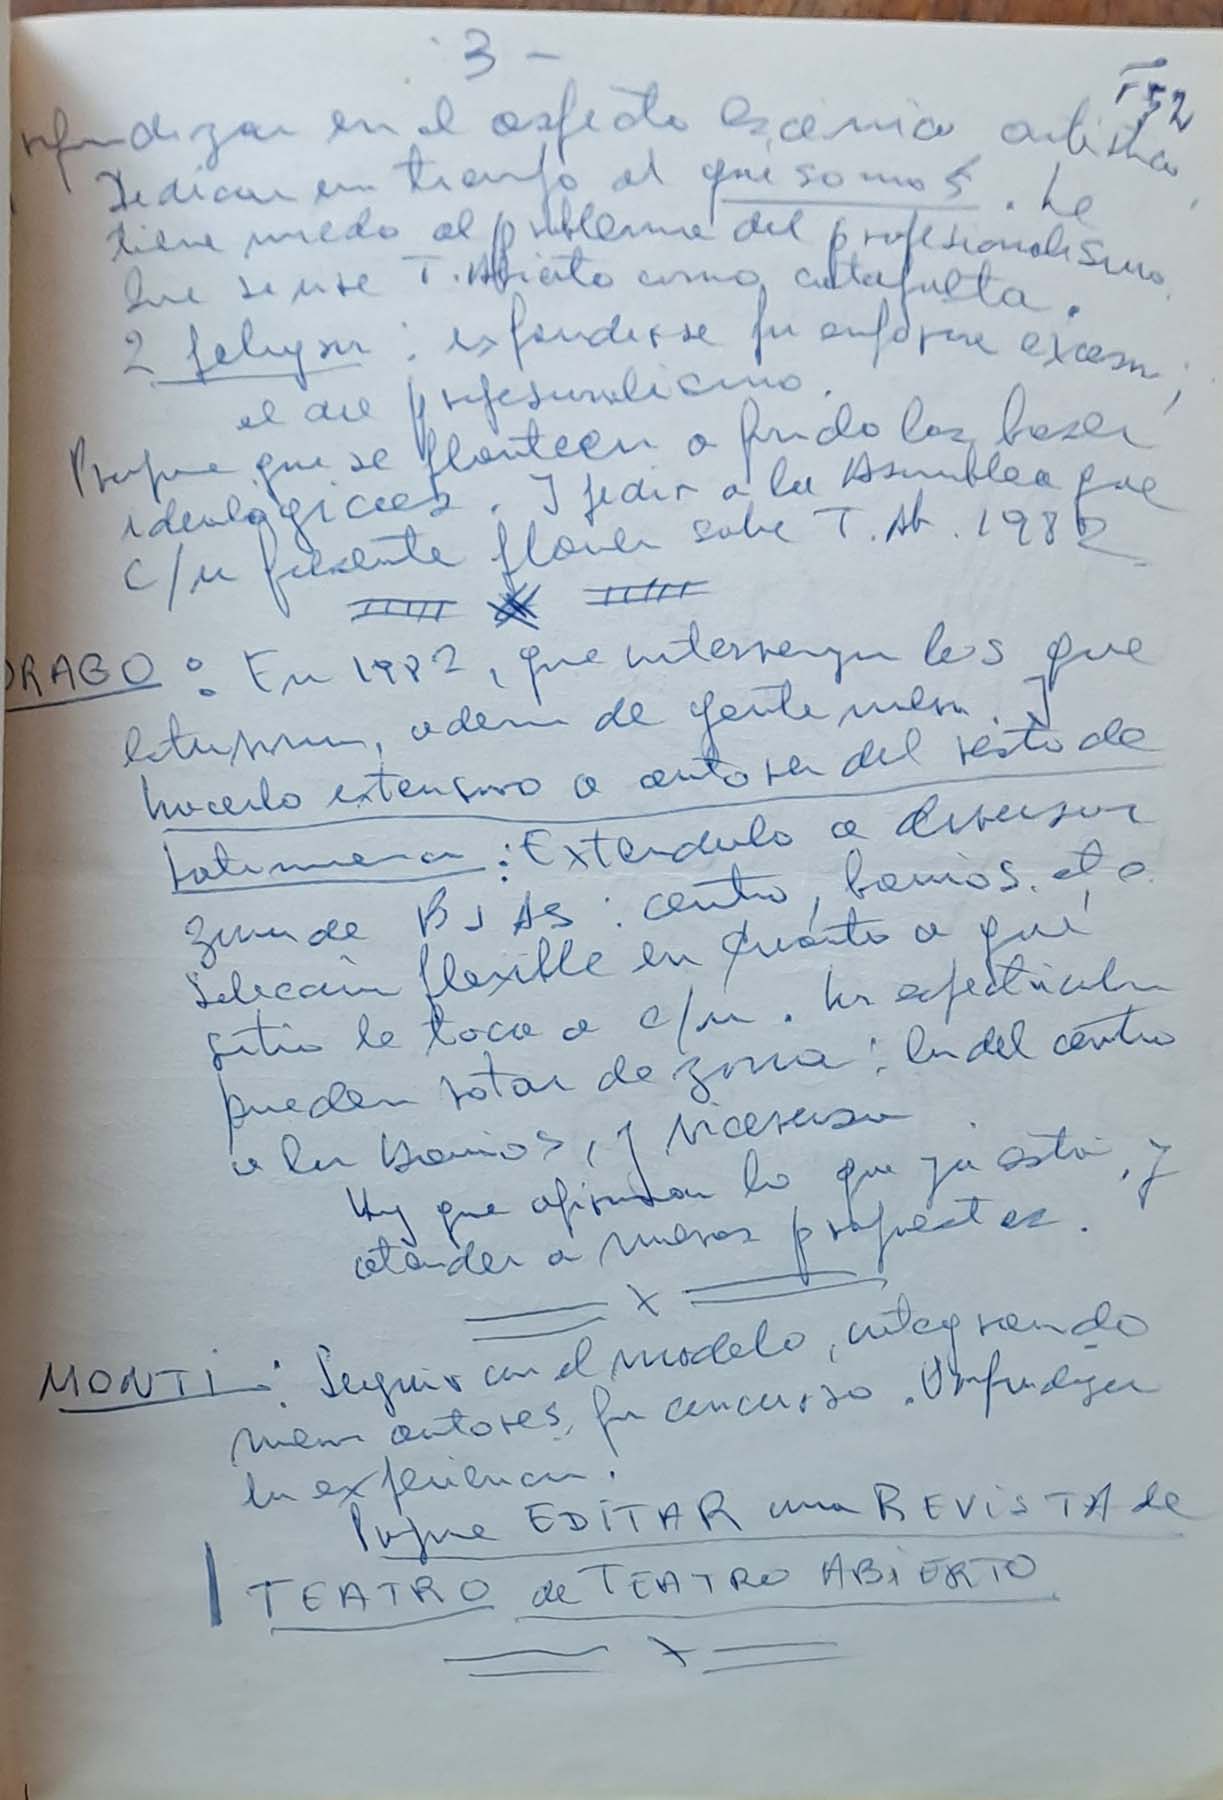 3 -
152
profundizar en el aspecto escénico artístico.
Dedicar un tiempo al qué somos. Le
tiene miedo al problema del profesionalismo.
Que se use T. Abierto como catapulta.
2 peligros: expanderse en enforme excesiva,
el del profesionalismo.
Propone que se planteen a fondo las bases
ideológicas. Y pedir a la Asamblea que
c/u presente planes sobre T. Ab. 1982
DRAGO: En 1982, que intervengan los que
estuvieron, además de gente nueva. Y
hacerlo extensivo a autores del resto de
Latinoamérica: Extenderlo a diversas
zonas de Bs As: centro, barrios, etc.
Selección flexible en cuanto a qué
sitio le toca a c/u. Los espectáculos
pueden rotar de zona: los del centro
a los barrios, y viceversa
Hay que afirmar lo que ya está, y
atender a nuevas propuestas.
MONTI: Seguir con el modelo, integrando
nuevos autores, por concurso. Profundizar
la experiencia.
Propone EDITAR una REVISTA de
TEATRO de TEATRO ABIERTO